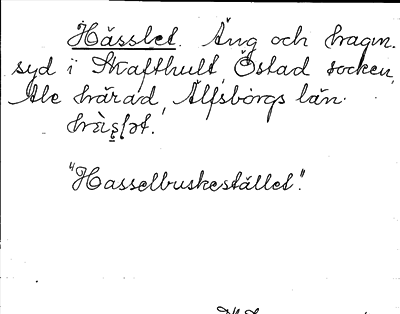 Hässlet. Äng och hragm.
syd i Skafthult, Östad socken,
Ale härad, Älfsborgs län.
"Hasselbuskestället".